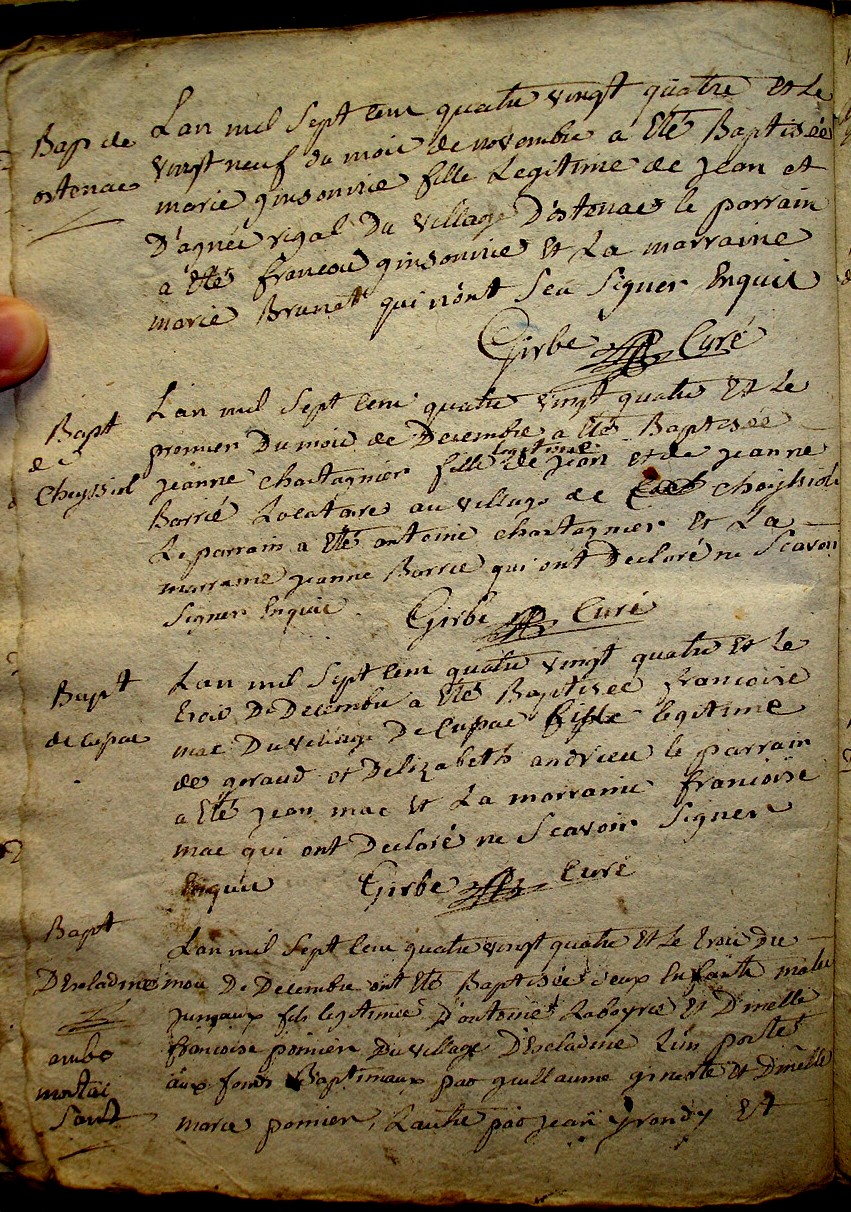 Bap de
ostenac
Lan mil Sept Cent quatre vingt quatre Et Le
vingt neuf du mois de novembre a Eté Baptisée
marie ginsomie fille Legitime de jean et
D'agnée rigal Du village D'ostenac le parrain
a Eté francois ginsomie Et La marraine
marie Brunet qui n'ont Seu Signer Enquis
Girbe Curé
Bapt
de
Cheyssiol
Lan mil Sept Cent quatre vingt quatre Et Le
premier Du mois de Decembre a Eté Baptisée
jeanne chastagnier fille legitime de jean et de jeanne
Borrié Locataire au village de cheyssiol
Le parrain a Eté antoine chastagnier Et La
marraine jeanne Borrie qui ont Declaré ne Scavoir
Signer Enquis
Girbe Curé
Bapt
de cupac
Lan mil Sept Cent quatre vingt quatre Et Le
trois De Decembre a Eté Baptisée francoise
mac Du village De Cupac fille legitime
de geraud et Delizabeth andrieu le parrain
a Eté jean mac Et La marraine francoise
mac qui ont Declaré ne Scavoir Signer
Enquis Girbe Curé
Bapt
D'Escladine
ambo
mortui
Sunt
Lan mil Sept Cent quatre vingt quatre Et Le trois du
mois De Decembre ont Eté Baptisée deux Enfants males
jumaux fils legitimes D'antoine Laboyrie Et Dmelle
francoise pomier Du village D'Escladine L'un porté
aux fonds Baptimaux par guillaume gineste Et Dmelle
marie pomier, Lautre par jean grandy Et